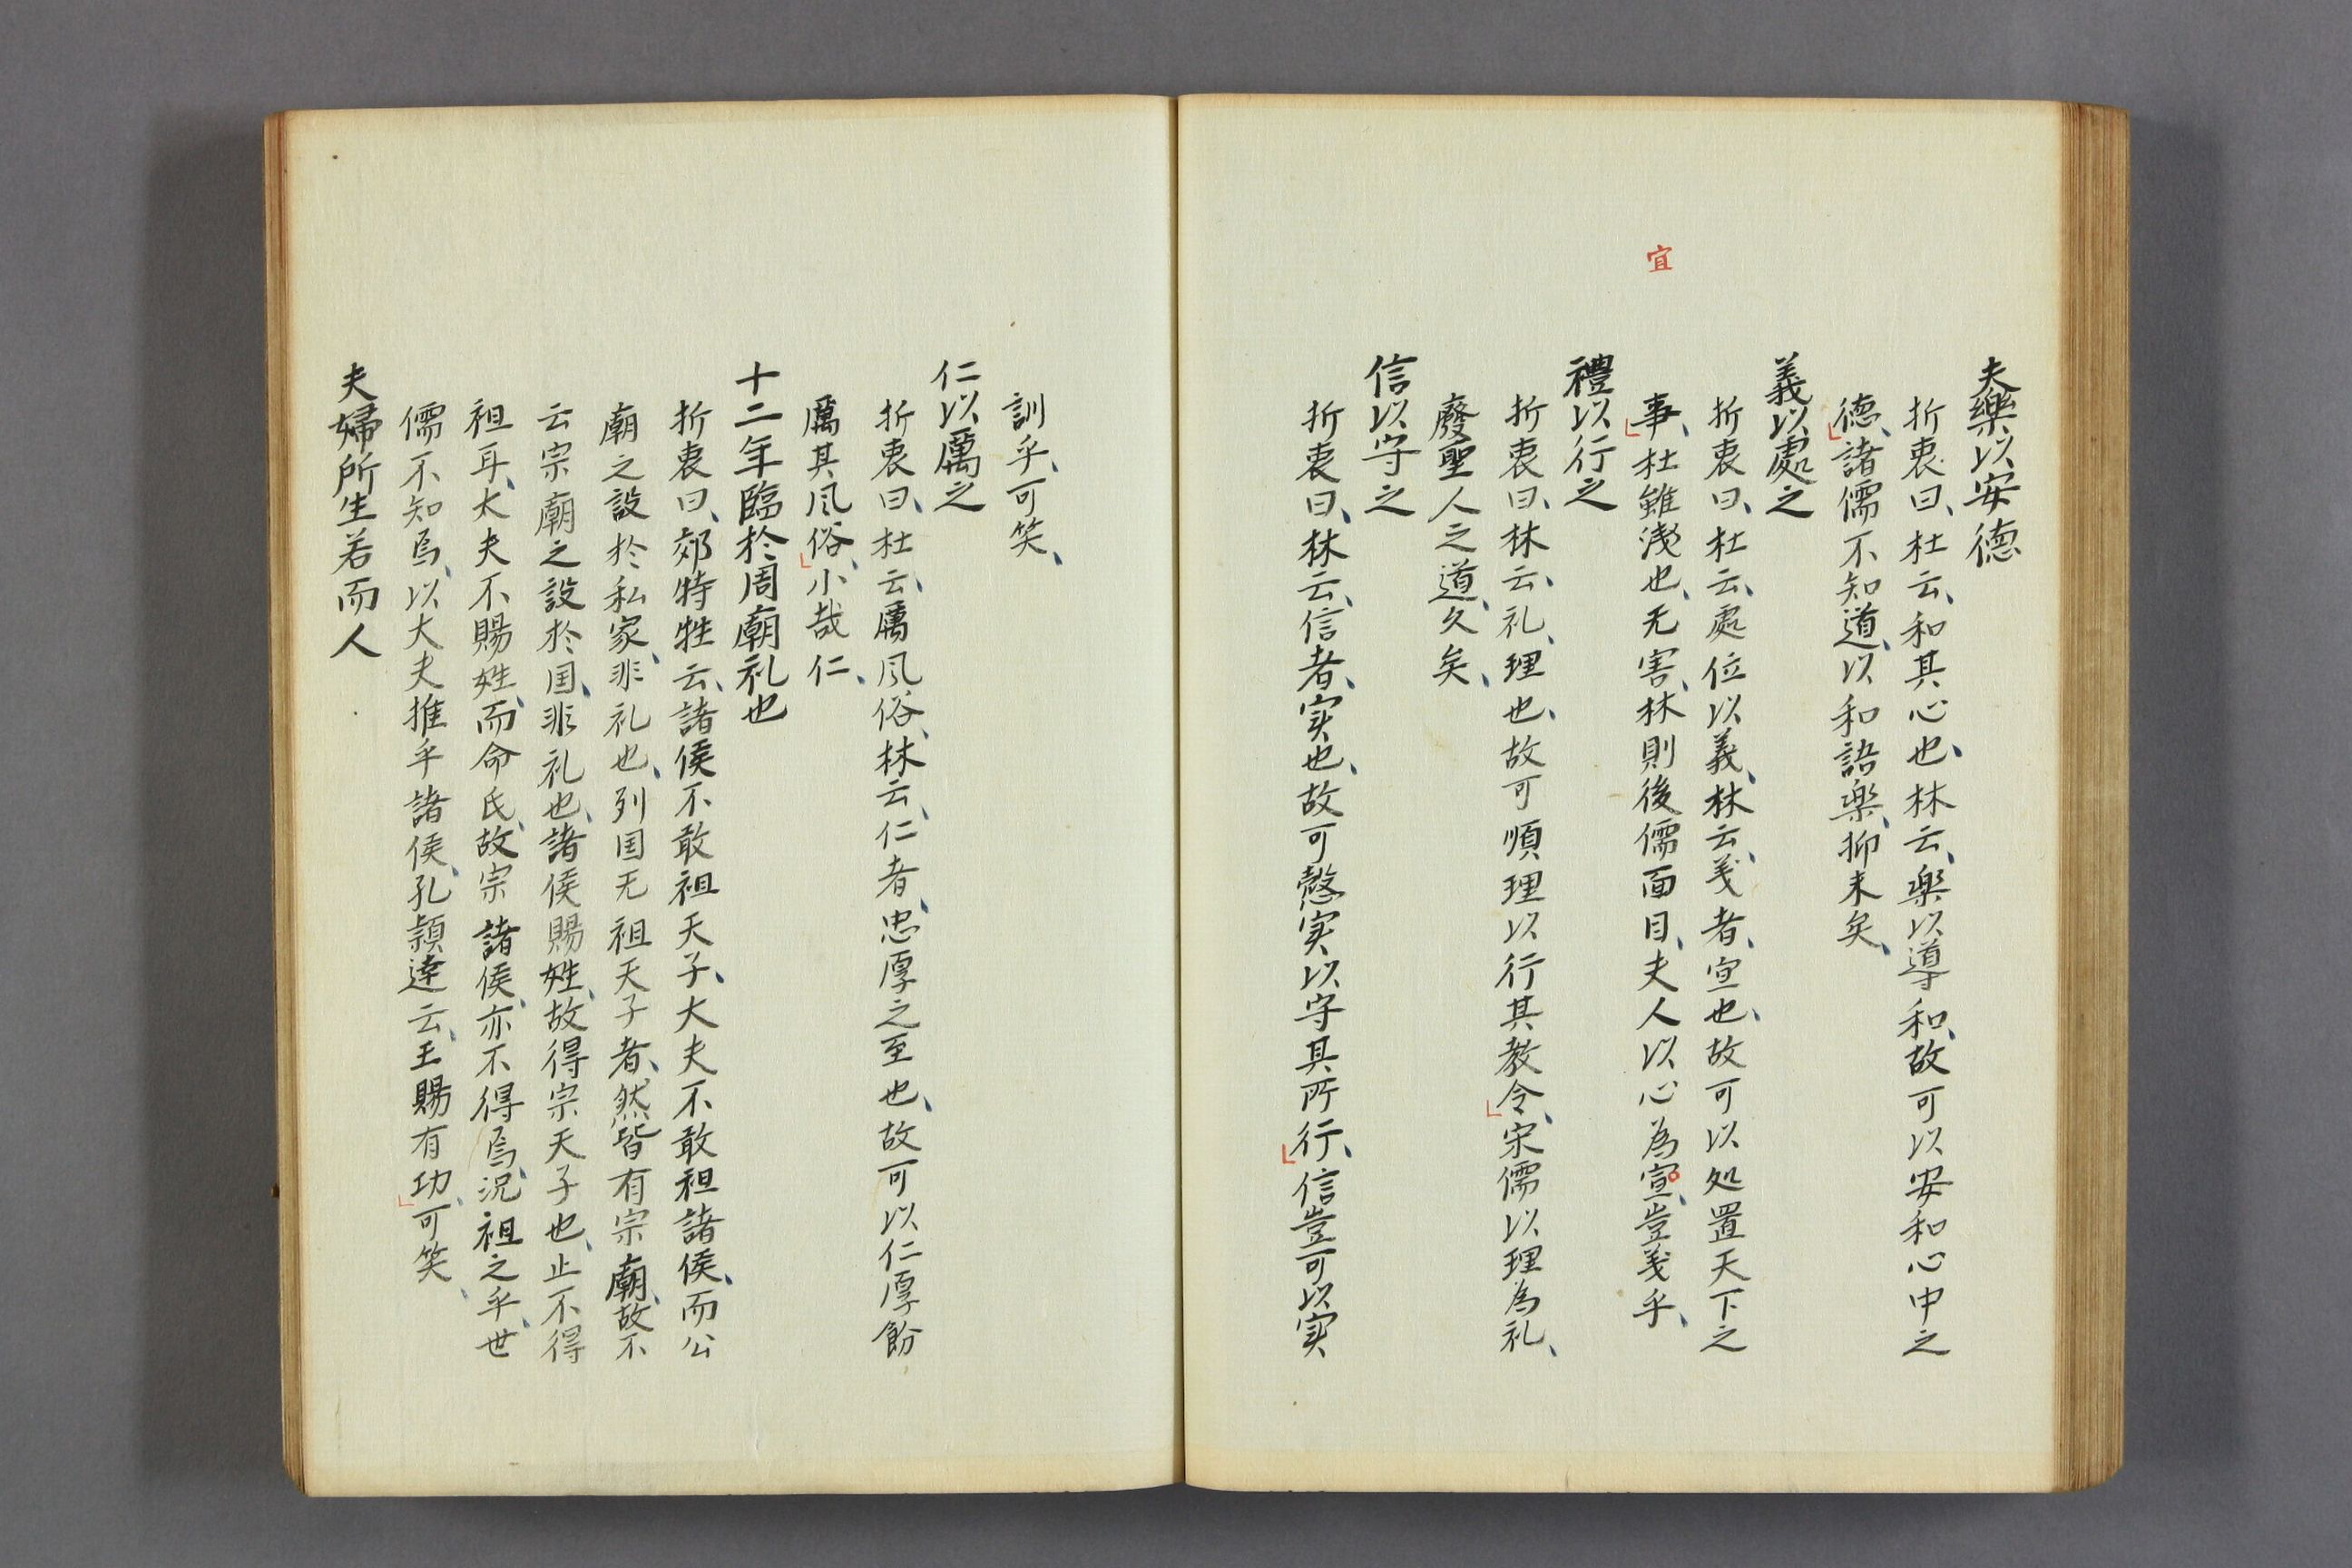 夫樂以安德
折衷曰、杜云、和其心也、林云、楽以導和、故可以安和心中之
德、諸儒不知道、以和語楽、抑末矣、
義以處之
折衷曰、杜云、處位以義、林云、义者、宜也、故可以处置天下之
事、杜雖浅也、无害、林則後儒面目、夫人以心為宣、豈义乎、
宜
禮以行之
折衷曰、林云、礼、理也、故可順理以行其教令、宋儒以理為礼、
廢聖人之道、久矣、
信以守之
折衷曰、林云、信者、実也、故可慤実以守其所行、信豈可以実
訓乎、可笑、
仁以厲之
折衷曰、杜云、厲風俗、林云、仁者、忠厚之至也、故可以仁厚飭
厲其風俗、小哉仁、
十二年臨於周廟礼也
折衷曰、郊特牲云、諸侯不敢祖天子、大夫不敢祖諸侯、而公
廟之設於私家、非礼也、列国无祖天子者、然皆有宗廟、故不
云宗廟之設於国、非礼也、諸侯賜姓、故得宗天子也、止不得
祖耳、大夫不賜姓、而命氏、故宗諸侯、亦不得焉、況祖之乎、世
儒不知焉、以大夫推乎諸侯、孔穎達云、王賜有功、可笑、
夫婦所生若而人